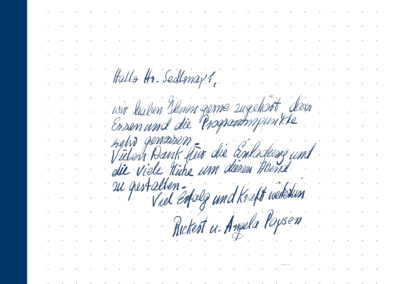 Hallo Hr. Sedlmayr,
wir haben Ihnen gerne zugehört das
Essen und die Programmpunkte
sehr genossen.
Vielen Dank für die Einladung und
die viele Mühe um diesen Abend
zu gestalten.
Viel Erfolg und Kraft weiterhin
u. Angela Paysen